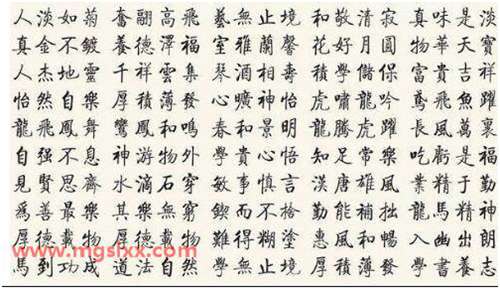 人淡如菊 奮翮高飛 藝無止境 和敬清寂 真味是淡
真金不鍍 養德澤福 室雅蘭馨 花好月圓 物華天寶
人杰地靈 千祥雲集 琴酒相壽 學儲保 富貴吉祥
怡然自樂 厚積薄發 心曠神怡 虎嘯龍吟 鳶飛魚躍
龍飛鳳舞 鸞鳳和鳴 春和景明 龍騰虎躍 長風萬裏
自强不息 神游物外 學貴心悟 知足常樂 吃虧是福
見賢思齊 水滴石穿 敏事慎言 漢唐雄風 業精于勤
爲善最樂 其樂無窮 鍥而不捨 勤能補拙 龍馬精神
厚德載物 厚德載物 難得糊塗 惠風和暢 入幽出朗
馬到功成 道法自然 學無止境 厚積薄發 學書養
www.mgslxx.com